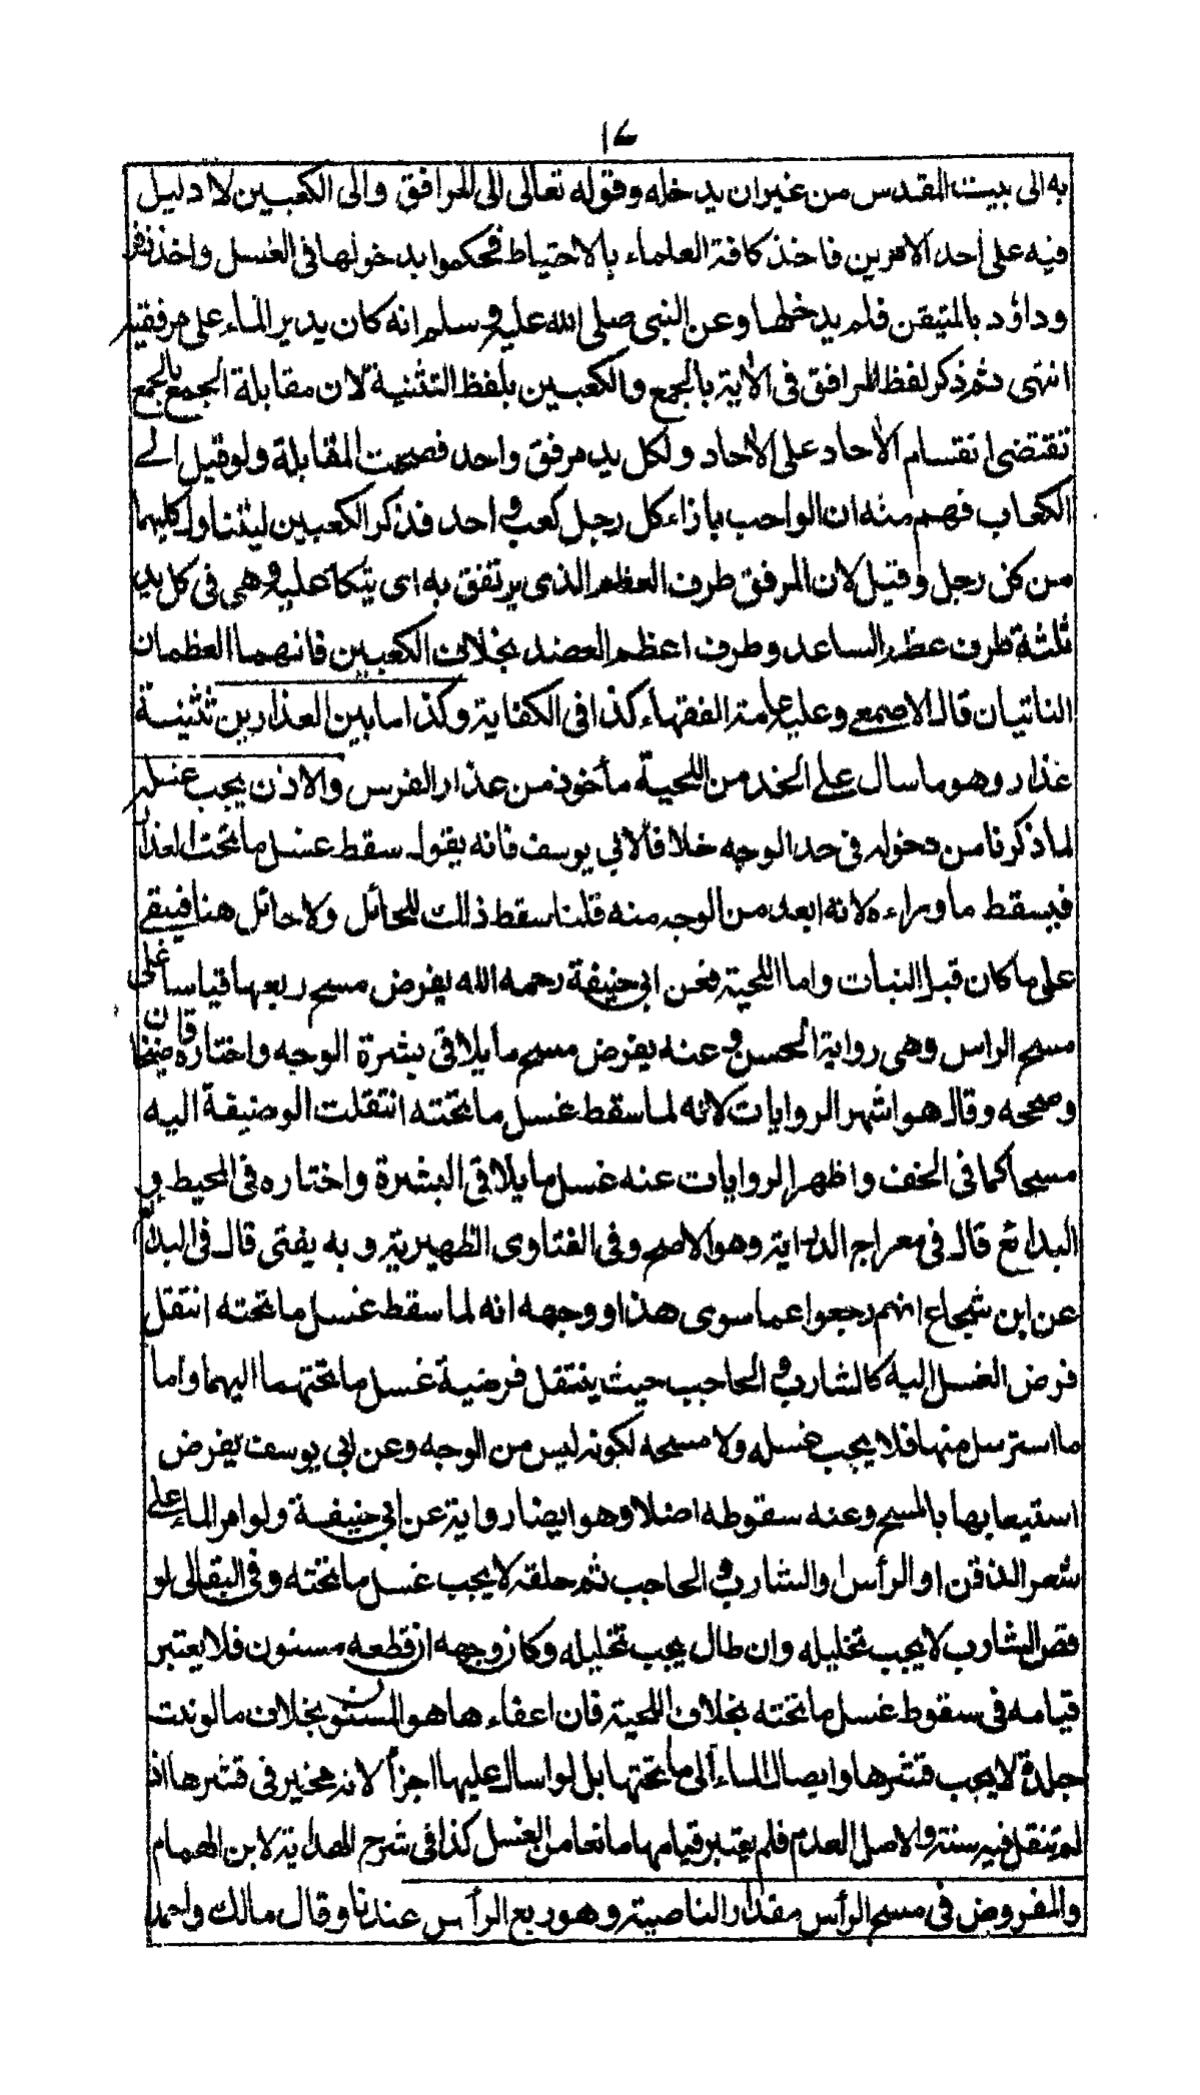 ١٧
به الى بيت المقدس من غير ان يدخله وقوله تعالى الى المرافق والى الكعبين لا دليل
فيه على احد الامرين فاخذ كافة العلماء بالاحتياط فحكموا بدخولها فى الغسل واخذ زفر
وداؤد بالمتيقن فلم يدخلها وعن النبى صلى الله عليه وسلم انه كان يدير الماء على مرفقيه
انتهى ثم ذكر لفظ المرافق فى الآية بالجمع والكعبين بلفظ التثنية لان مقابلة الجمع بالجمع
تقتضى انقسام الآحاد على الآحاد ولكل يد مرفق واحد فصحت المقابلة ولو قيل الى
الكعاب فهم منه ان الواجب بازاء كل رجل كعب واحد فذكر الكعبين ليتناول كليهما
من كل رجل وقيل لان المرفق طرف العظم الذى يرتفق به اى يتكأ عليه وهى فى كل يد
ثلثة طرف عظم الساعد وطرف اعظم العضد بخلاف الكعبين فانهما العظمان
الناتيان قال الاصمعى وعليه عامة الفقهاء كذا فى الكفاية وكذا ما بين العذارين تثنية
عذار وهو ما سال على الخد من اللحية مأخوذ من عذار الفرس والاذن يجب غسله
لما ذكرنا من دخوله فى حد الوجه خلافا لابي يوسف فانه يقول سقط غسل ما تحت العذار
فيسقط ما وراءه لانه ابعد من الوجه منه قلنا سقط ذلك للحائل ولا حائل هنا فيبقى
على ما كان قبل النبات واما اللحية فعن ابي حنيفة رحمه الله يفرض مسح ربعها قياسا على
مسح الراس وهى رواية الحسن وعنه يفرض مسح ما يلاقى بشرة الوجه واختاره قاضيخان
وصححه وقال هو اشهر الروايات لانه لما سقط غسل ما تحته انتقلت الوضيفة اليه
مسحا كما فى الخف واظهر الروايات عنه غسل ما يلاقى البشرة واختاره فى المحيط و
البدائع قال فى معراج الدراية وهو الاصح وفى الفتاوى الظهيرية وبه يفتى قال فى البدائع
عن ابن شجاع انهم رجعوا عما سوى هذا ووجهه انه لما سقط غسل ما تحته انتقل
فرض الغسل اليه كالشارب والحاجب حيث ينتقل فرضية غسل ما تحتهما اليهما واما
ما استرسل منها فلا يجب غسله ولا مسحه لكونه ليس من الوجه وعن ابي يوسف يفرض
استيعابها بالمسح وعنه سقوطه اصلا وهو ايضا رواية عن ابي حنيفة ولو امر الماء على
شعر الذقن او الرأس او الشارب والحاجب ثم حلقه لا يجب غسل ما تحته وفى البقالى لو
قص الشارب لا يجب تخليله وان طال يجب تخليله وكان وجهه ان قطعه مسنون فلا يعتبر
قيامه فى سقوط غسل ما تحته بخلاف اللحية فان اعفاءها هو المسنون بخلاف ما لو نبتت
جلدة لا يجب قشرها وايصال الماء الى ما تحتها بل لو اسال عليها اجزأ لانه مخير فى قشرها اذ
لم تنقل فيه سنة والاصل العدم فلم يعتبر قيامها مانعا من الغسل كذا فى شرح الهداية لابن الهمام
والمفروض فى مسح الرأس مقدار الناصية وهو ربع الرأس عندنا وقال مالك واحمد